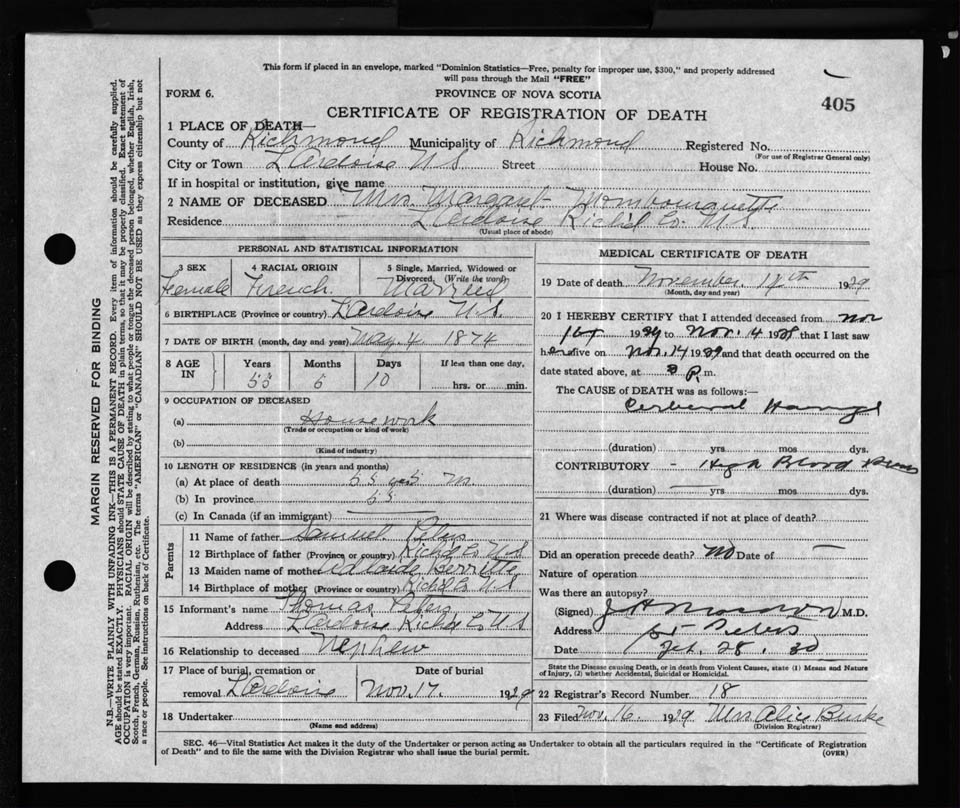 This form if placed in an envelope, marked "Dominion Statistics—Free, penalty for improper use, $300," and properly addressed
will pass through the Mail "FREE"
FORM 6.
PROVINCE OF NOVA SCOTIA
405
CERTIFICATE OF REGISTRATION OF DEATH
1 PLACE OF DEATH—
County of Richmond Municipality of Richmond Registered No.
(For use of Registrar General only)
City or Town L'Ardoise N.S. Street House No.
If in hospital or institution, give name
2 NAME OF DECEASED Mrs. Margaret Mombourquette
Residence L'Ardoise Rich'd Co. N.S.
(Usual place of abode)
PERSONAL AND STATISTICAL INFORMATION
3 SEX 4 RACIAL ORIGIN 5 Single, Married, Widowed or
Divorced (Write the word)
Female French Married
6 BIRTHPLACE (Province or country) L'Ardoise N.S.
7 DATE OF BIRTH (month, day and year) May 4 1874
8 AGE IN Years Months Days If less than one day,
55 6 10 hrs. or min.
9 OCCUPATION OF DECEASED
(a) House work
(Trade or occupation or kind of work)
(b)
(Kind of industry)
10 LENGTH OF RESIDENCE (in years and months)
(a) At place of death 55 yrs 6 m
(b) In province 55
(c) In Canada (if an immigrant)
Parents
11 Name of father Samuel Peters
12 Birthplace of father (Province or country) Rich'd Co N.S
13 Maiden name of mother
14 Birthplace of mother (Province or country) Rich'd Co N.S
15 Informant's name Thomas Peters
Address L'Ardoise Rich'd Co N.S
16 Relationship to deceased Nephew
17 Place of burial, cremation or Date of burial
removal L'Ardoise Nov. 17. 1929
18 Undertaker
(Name and address)
MEDICAL CERTIFICATE OF DEATH
19 Date of death November 14th 1929
(Month, day and year)
20 I HEREBY CERTIFY that I attended deceased from Nov
1929 to Nov. 14 1929 that I last saw
her alive on Nov. 14 1929 and that death occurred on
date stated above, at P.m.
The CAUSE OF DEATH was as follows:—
(duration) yrs mos dys.
CONTRIBUTORY - High Blood Press
(duration) yrs mos dys.
21 Where was disease contracted if not at place of death?
Did an operation precede death? No Date of —
Nature of operation
Was there an autopsy?
(Signed) M.D.
Address St Peters
Date Feb. 28. 30
State the Disease causing Death, or in death from Violent Causes, state (1) Means and Nature
of Injury, (2) whether Accidental, Suicidal or Homicidal.
22 Registrar's Record Number 18
23 Filed Nov. 16 1929 Mrs Alice Burke
(Division Registrar)
SEC. 46—Vital Statistics Act makes it the duty of the Undertaker or person acting as Undertaker to obtain all the particulars required in the "Certificate of Registration
of Death" and to file the same with the Division Registrar who shall issue the burial permit.
(OVER)
MARGIN RESERVED FOR BINDING
N.B.—WRITE PLAINLY WITH UNFADING INK—THIS IS A PERMANENT RECORD. Every item of information should be carefully supplied.
AGE should be stated EXACTLY. PHYSICIANS should STATE CAUSE OF DEATH in plain terms, so that it may be properly classified. Exact statement of
OCCUPATION is very important. RACIAL ORIGIN will be described by stating to what people or tongue the deceased person belonged, whether English, Irish,
Scotch, French, German, Russian, Ruthenian, etc. The terms "AMERICAN" or "CANADIAN" SHOULD NOT BE USED as they express citizenship but not
a race or people. See instructions on back of Certificate.